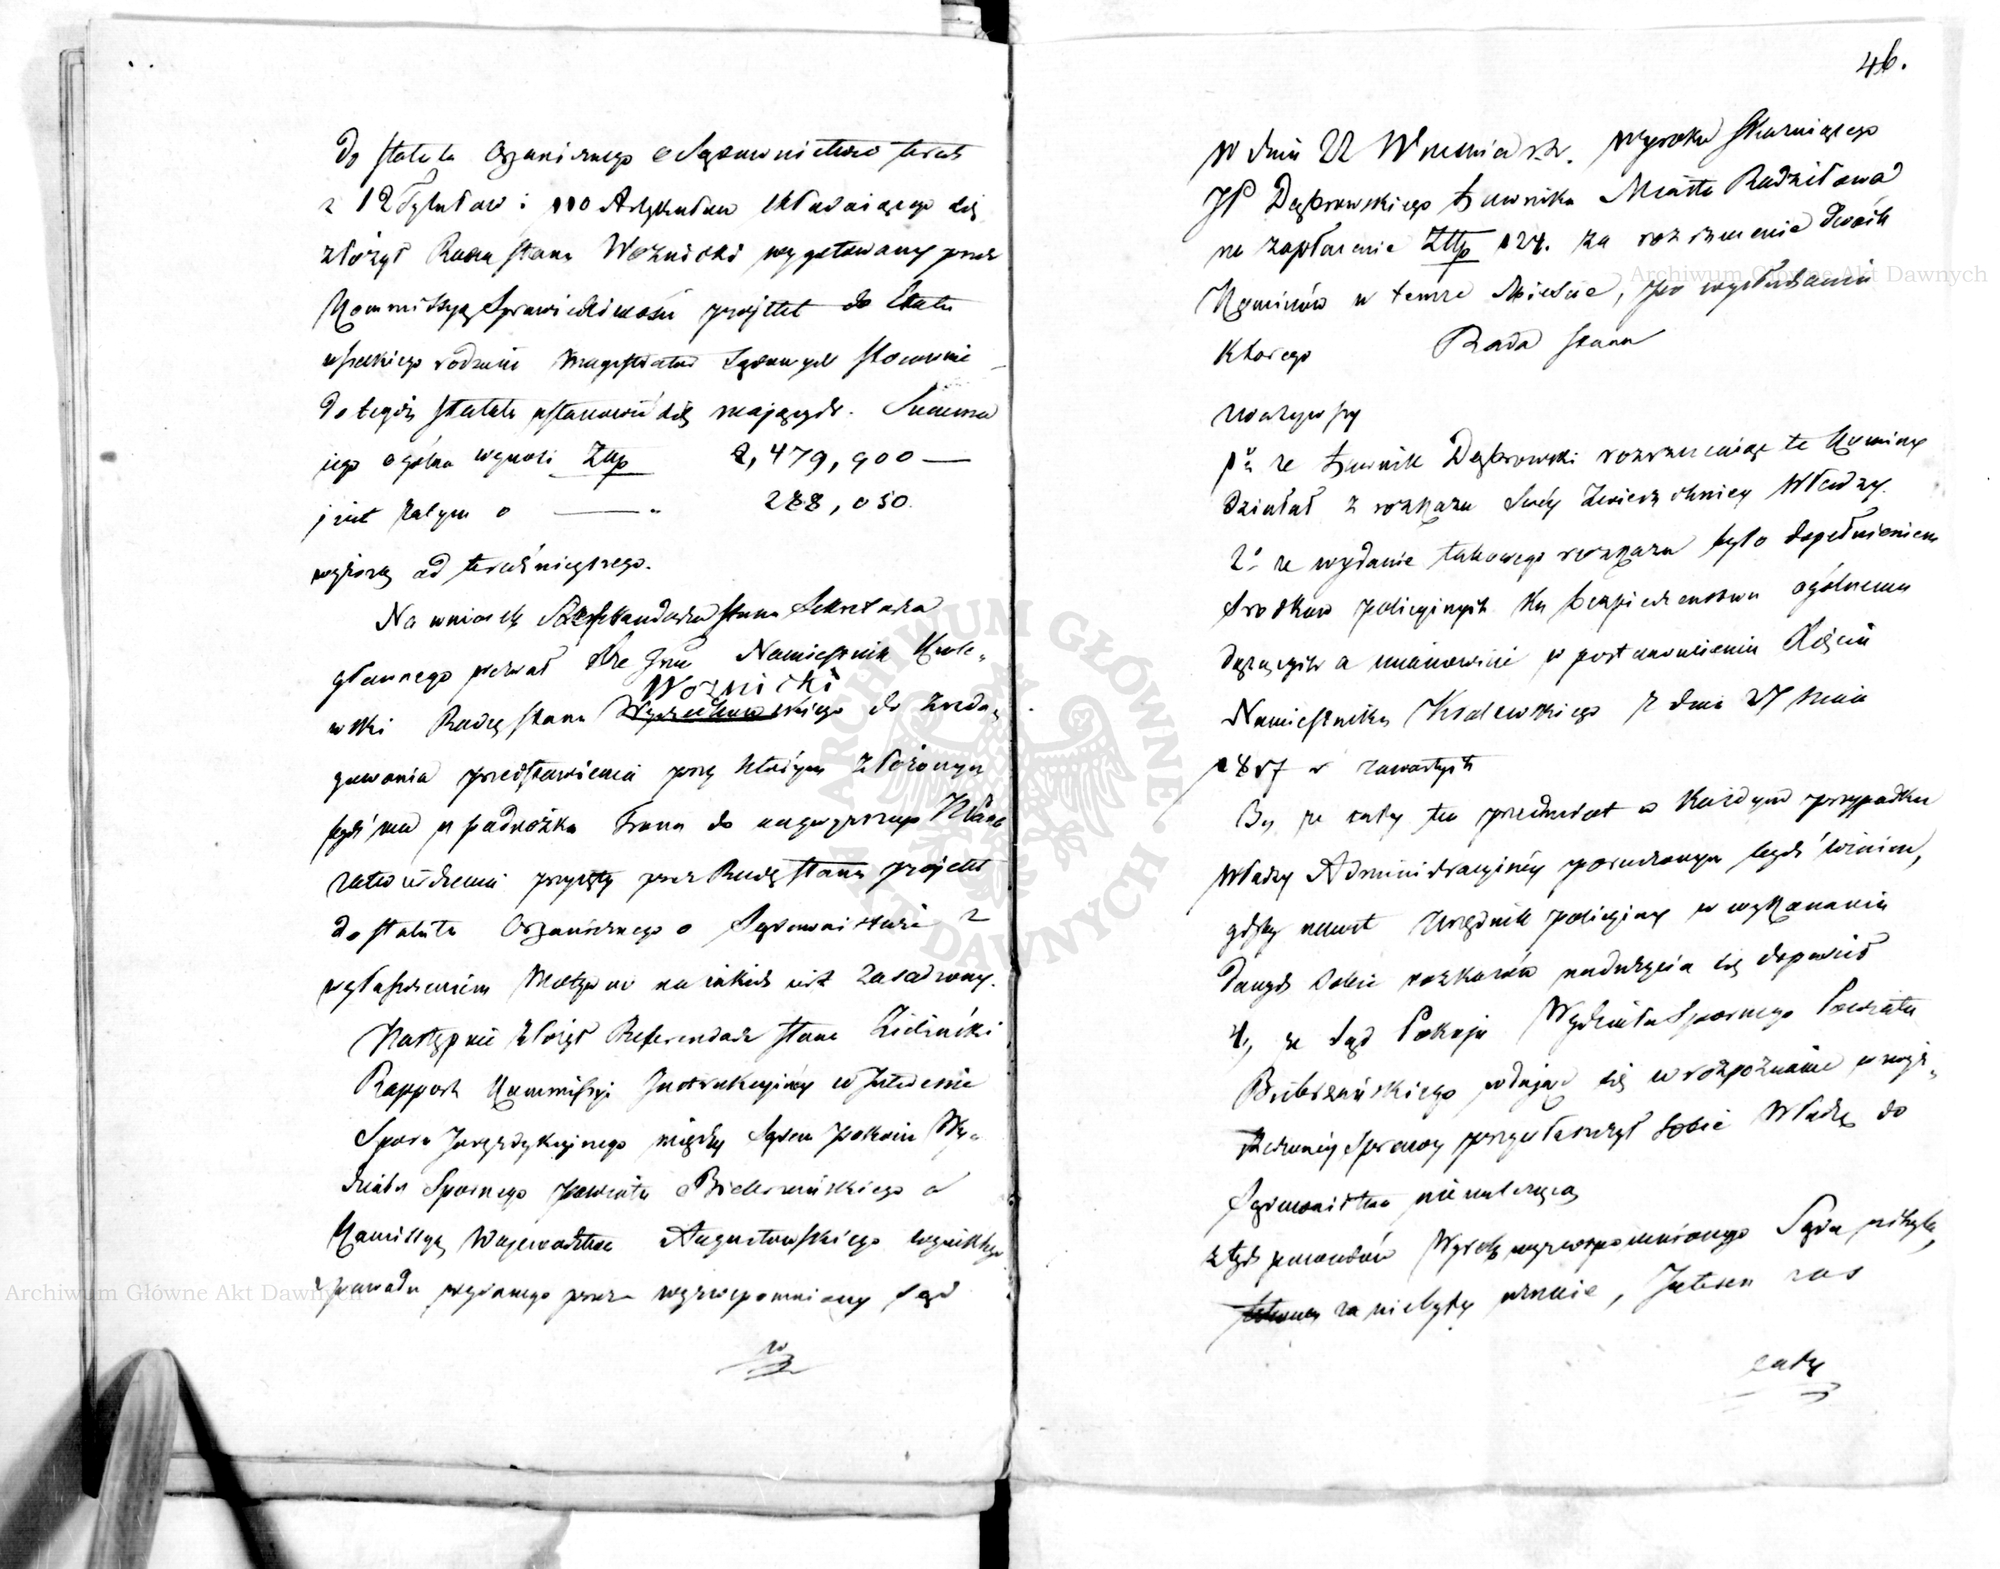 do statutu Organicznego o Sądownictwie teraz
z 12 Tytułów i 110 Artykułów składaiącego się
złożył Radca Stanu Woźnicki wygotowany przez
Kommissyą Sprawiedliwości projekt do Etatu
wszelkiego rodzaiu Magistratur Sądowych stosownie
do tegoż statutu ustanowić się mających. Summa
iego ogólna wynosi Złłp 2,479,900 —
jest zatym o — " 288,050.
wyższą od teraźnieyszego.
Na wniosek Referendarza Stanu Sekretarza
głównego wezwał Xże Jmć Namiestnik Królewski
Woźnicki
wski Radcę Stanu do zreda-
gowania przedstawienia przy którym złożonym
bydź ma u podnóżka Tronu do naywyższego
zatwierdzenia przyięty przez Radę Stanu projekt
do statutu Organicznego o Sądownictwie z
wyłuszczeniem Motywów na iakich iest zasadzony.
Następnie złożył Referendarz Stanu Zieliński
Rapport Kommissyi Instrukcyiney w Interesie
Sporu Juryzdykcyinego między Sądem Pokoiu Wy-
działu Spornego Powiatu Biebrzańskiego a
Kommissyą Województwa Augustowskiego wynikłego
z powodu wydanego przez wyżwspomniony Sąd
w
46.
w dniu 22 Września r. z. wyroku skazuiącego
JP Dąbrowskiego Ławnika Miasta Radziłowa
na zapłacenie Złłp 127. za rozrzucenie dwóch
Kominów w temże Mieście, po wysłuchaniu
którego Rada Stanu
zważywszy
1° że Ławnik Dąbrowski rozrzucaiąc te Kominy
działał z rozkazu swéy Zwierzchniey Władzy.
2° że wydanie takowego rozkazu było dopełnieniem
środków policyinych ku bezpieczeństwu ogólnemu
dążących a mianowicie w postanowieniu Xięcia
Namiestnika Królewskiego z dnia 27 Maia
1817 r. zawartych
3, że cały ten przedmiot w każdym przypadku
Władzy Administracyinéy poruczonym bydź winien,
gdyby nawet Urzędnik policyiny w wykonaniu
danych sobie rozkazów nadużycia się dopuścił
4, że Sąd Pokoju Wydziału Spornego Powiatu
Biebrzańskiego wdając się w rozpoznanie wwyż-
rzeczonéy sprawy przywłaszczył sobie Władzę do
Sądownictwa nienależącą
z tych powodów Wyrok wyżwspomnionego Sądu
za niebyły uznaie, Interes zaś
cały